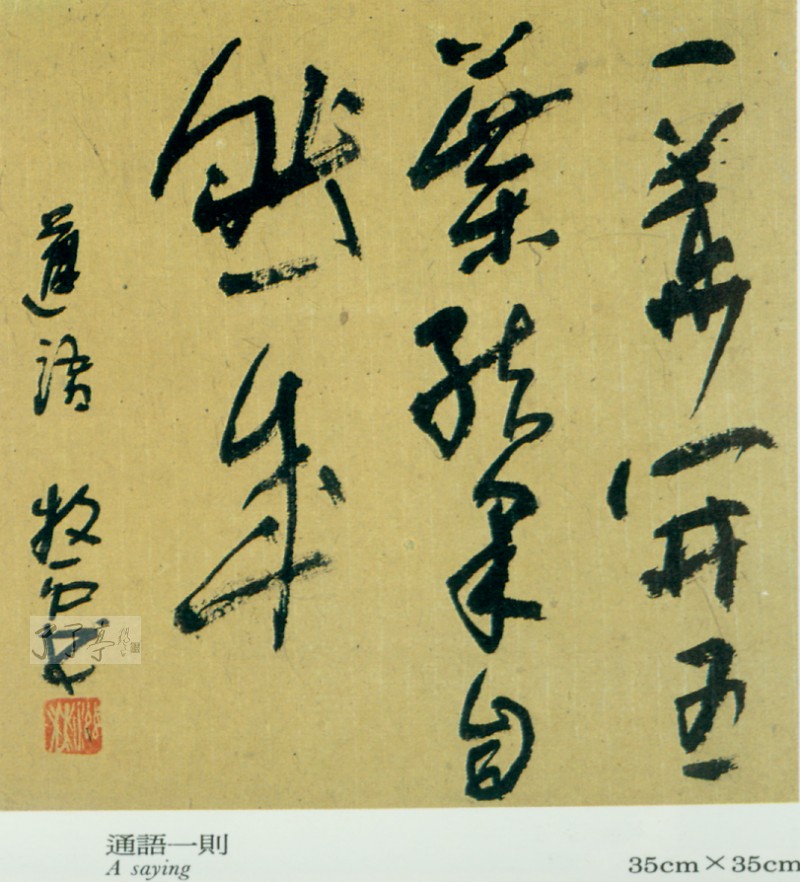 一華開五
葉結果自
然成
語 牧石
了了亭
通語一則
A saying
35cm×35cm